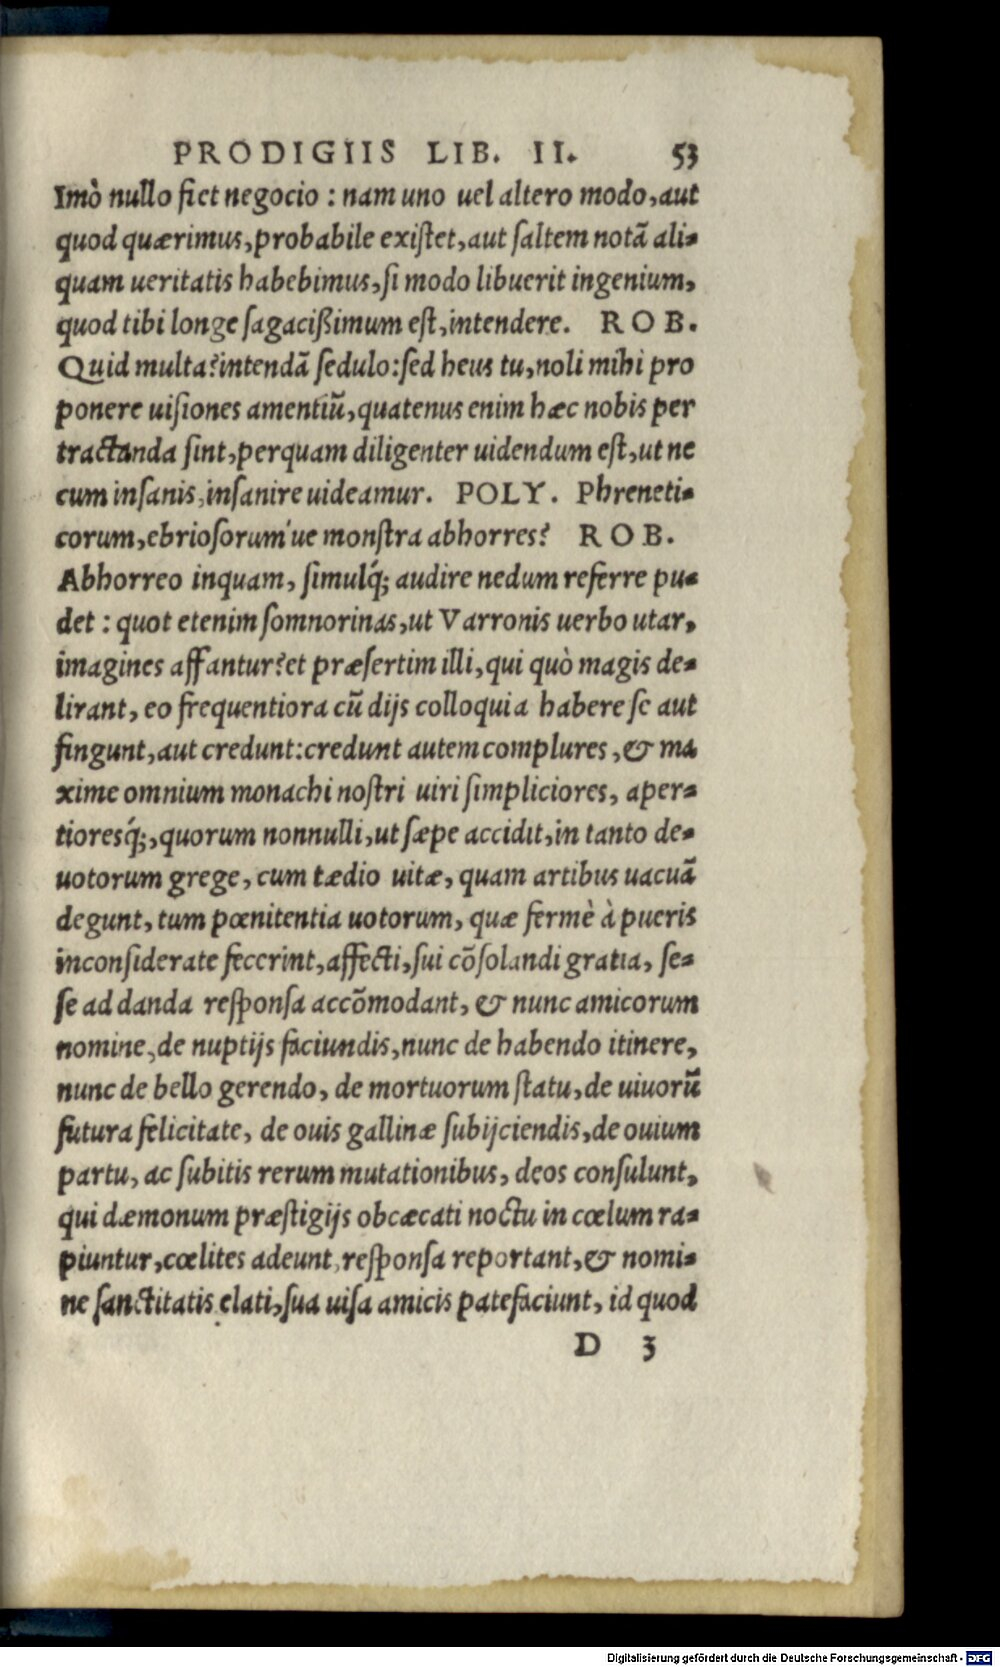 PRODIGIIS LIB. II. 53
Imò nullo fiet negocio : nam uno uel altero modo, aut
quod quærimus, probabile exiſtet, aut ſaltem notã ali-
quam ueritatis habebimus, ſi modo libuerit ingenium,
quod tibi longe ſagacißimum eſt, intendere. ROB.
Quid multa? intendã ſedulo: ſed heus tu, noli mihi pro
ponere uiſiones amentiũ, quatenus enim hæc nobis per
tractanda ſint, perquam diligenter uidendum eſt, ut ne
cum inſanis, inſanire uideamur. POLY. Phreneti-
corum, ebrioſorum'ue monſtra abhorres? ROB.
Abhorreo inquam, ſimulq́; audire nedum referre pu-
det : quot etenim ſomnorinas, ut Varronis uerbo utar,
imagines affantur? et præſertim illi, qui quò magis de-
lirant, eo frequentiora cũ dijs colloquia habere ſe aut
fingunt, aut credunt: credunt autem complures, & ma
xime omnium monachi noſtri uiri ſimpliciores, aper-
tioresq́;, quorum nonnulli, ut ſæpe accidit, in tanto de-
uotorum grege, cum tædio uitæ, quam artibus uacuã
degunt, tum pœnitentia uotorum, quæ fermè à pueris
inconſiderate fecerint, affecti, ſui cõſolandi gratia, ſe-
ſe ad danda reſponſa accõmodant, & nunc amicorum
nomine, de nuptijs faciundis, nunc de habendo itinere,
nunc de bello gerendo, de mortuorum ſtatu, de uiuorũ
futura felicitate, de ouis gallinæ ſubijciendis, de ouium
partu, ac ſubitis rerum mutationibus, deos conſulunt,
qui dæmonum præſtigijs obcæcati noctu in cœlum ra-
piuntur, cœlites adeunt, reſponſa reportant, & nomi-
ne ſanctitatis elati, ſua uiſa amicis patefaciunt, id quod
D 3
Digitalisierung gefördert durch die Deutsche Forschungsgemeinschaft - DFG